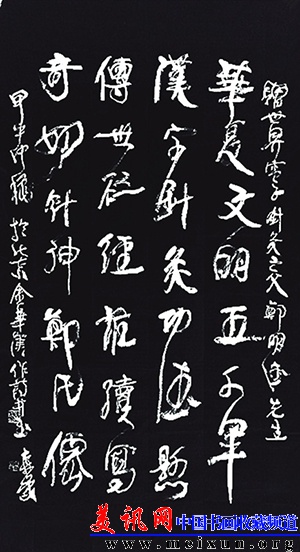 贈世界電子針灸之父鄭明 先生
華夏文明五千年
漢字針灸功德懸
傳世 經 續寫
奇妙針神鄭氏僊
甲午仲 於北京
美讯网 中国书画收藏频道
www.meixun.org